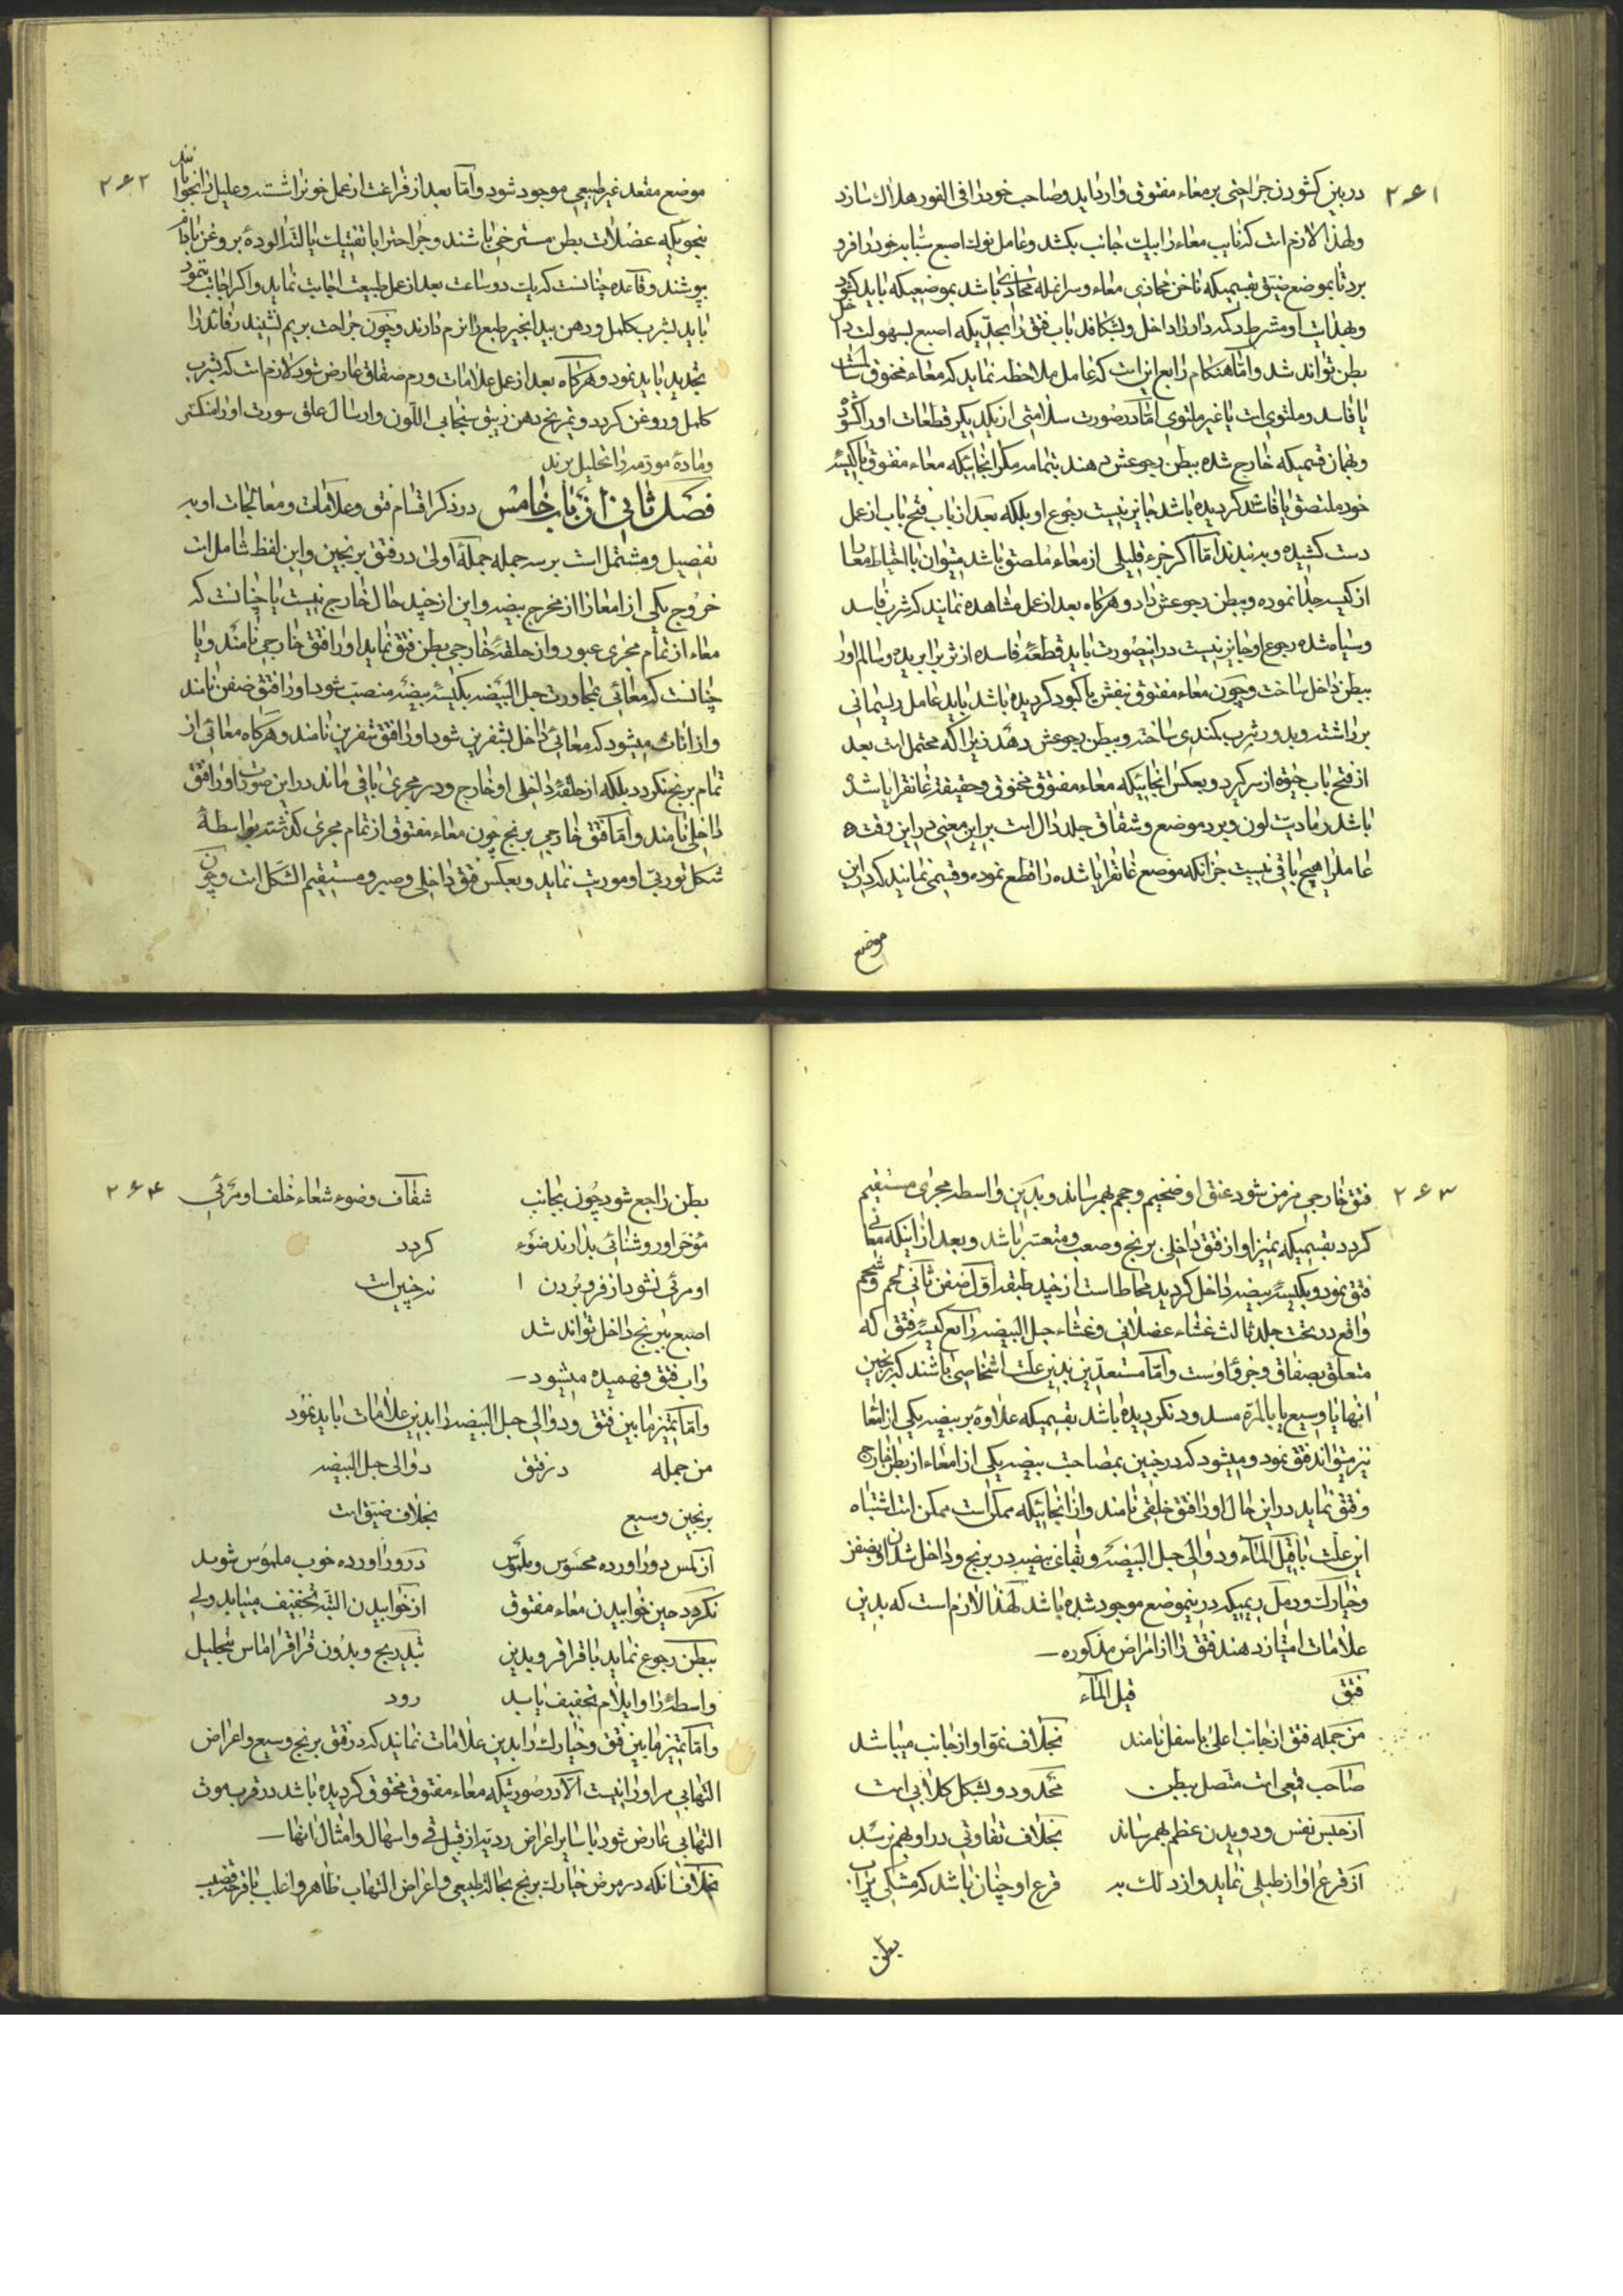 ۲۶۱
در بین کشودن جراحتی بر معاء مفتوق وارد اید و صاحب خود را فی الفور هلاک سازد
و لهذا لازم است که نایب معاء را بیک جانب بکشد و عامل نوک اصبع سبابه خود را فرو
برد تا بموضع ضیق بقسمیکه ناخن محاذی معاء و سر انمله محاذی باشد بموضعیکه باید کشود
و بهدایت او مشرط دکمه دار را داخل و بشکافد باب فتق را بحدیکه اصبع بسهولت داخل
بطن تواند شد و اما هنکام رابع این است که عامل ملاحظه نماید که معاء مخنوق سالمست
یا فاسد و ملتوی است یا غیر ملتوی اما در صورت سلامتی از یکدیکر قطعات او را کشوده
و بهمان قسمیکه خارج شده ببطن رجوعش دهند بتمامه مکر انجائیکه معاء مفتوق با کیسهٔ
خود ملتصق یا فاسد کردیده باشد جایز نیست رجوع او بلکه بعد از باب فتح باب از عمل
دست کشیده و به بندند اما اکر جزء قلیلی از معاء ملصق باشد میتوان با احتیاط معا را
از کیسه جدا نموده و ببطن رجوعش داد و هرکاه بعد از عمل مشاهده نمایند که ثرب فاسد
و سیاه شده رجوع او جایز نیست در اینصورت باید قطعهٔ فاسده از ثرب را بریده و سالم او را
ببطن داخل ساخت و چون معاء مفتوق بنفش یا کبود کردیده باشد باید عامل ریسمانی
برداشته و بدور ثرب کمندی ساخته و ببطن رجوعش دهد زیرا که محتمل است بعد
از فتح باب حیوة از سر کیرد و بعکس انجائیکه معاء مفتوق مخنوق و حقیقة غانقرایا شده
باشد رمادیت لون و برد موضع و شقاق جلد دال است بر این معنی در این وقت
عامل را هیچ باقی نیست جز انکه موضع غانقرایا شده را قطع نموده و قسمی نمایند که در این
موضع
۲۶۲
موضع مقعد غیر طبیعی موجود شود و اما بعد از فراغت از عمل خون را شسته و علیل را بخوابانند
بنحویکه عضلات بطن مسترخی باشند و جراحت را با تفتیک یا لته الودهٔ بروغن بادام
بپوشند و قاعده چنانست که یک دو ساعت بعد از عمل طبیعت اجابت نماید و اکر اجابت ننمود
باید بشرب کلمل و دهن بید انجیر طبع را نرم دارند و چون جراحت بریم نشیند رفائد را
تجدید باید نمود و هرکاه بعد از عمل علامات ورم صفاق عارض شود لازم است که بشرب
کلمل و روغن کرچد و تمریخ دهن زیبق سنجابی اللون و ارسال علق سورت او را شکسته
و مادهٔ مورمه را تحلیل برند
فصل ثانی از باب خامس در ذکر اقسام فتق و علامات و معالجات او به
تفصیل و مشتمل است بر سه جمله جملهٔ اولی در فتق برنجین و این لفظ شامل است
خروج یکی از امعاء را از مخرج بیضه و این از چند حال خارج نیست یا چنانست که
معاء از تمام مجری عبور و از حلقهٔ خارجی بطن فتق نماید او را فتق خارجی نامند و یا
چنانست که معائی بمجاورت حبل البیضه بکیسهٔ بیضه منصب شود او را فتق ضفن نامند
و از اناث میشود که معائی داخل بشفرین شود او را فتق شفرین نامند و هرکاه معائی از
تمام برنج نکردد بلکه از حلقهٔ داخلی او خارج و در مجری باقی ماند در این صورت او را فتق
داخلی نامند و اما فتق خارجی برنج چون معاء مفتوق از تمام مجری کذشته بواسطهٔ
شکل توربی او موریت نماید و بعکس فتق داخلی قصیر و مستقیم الشکل است و چون
۲۶۳
فتق خارجی مزمن شود عنق او ضخیم و حجم بهم رساند و بدین واسطه مجری مستقیم
کردد بقسمیکه تمیز او از فتق داخلی برنج وصعب و متعسر باشد و بعد از اینکه معائی
فتق نمود و بکیسهٔ بیضه داخل کردید محاط است از چند طبقه اول ضفن ثانی لحم و شحم
واقع در تحت جلد ثالث غشاء عضلانی و غشاء حبل البیضه رابع کیسهٔ فتق که
متعلق بصفاق و جزؤ اوست و اما مستعدین بدین علت اشخاصی باشند که برنجین
انها یا وسیع یا بالمرة مسدود نکردیده باشد بقسمیکه علاوه بر بیضه یکی از امعا
نیز میتواند فتق نمود و میشود که در جنین بمصاحبت بیضه یکی از امعاء از بطن خارج
و فتق نماید در این حال او را فتق خلقی نامند و از انجائیکه ممکن است ممکن است اشتباه
این علت با قیل الماء و دوالی حبل البیضه و بقاء بیضه در برنج و داخل شدن او بضفن
و خیارک و دمل ریمیکه در اینموضع موجود شده باشد لهذا لازم است که بدین
علامات امتیاز دهند فتق را از امراض مذکوره
فتق قیل الماء
من جمله فتق از جانب اعلی باسفل نامند بخلاف نمو او از جانب میباشد
صاحب قمعی است متصل ببطن محدود و بشکل کلابی است
از حبس نفس و دویدن عظم بهم رساند بخلاف تفاوتی در او بهم نرسد
از قرع اواز طبلی نماید و از دلک به قرع او چنان باشد که مشکی پر اب
بطن
۲۶۴
بطن راجع شود چون بجانب شفاف و ضوء شعاء خلف او مرئی
مؤخر او روشنائی بدارند ضوء کردد
او مرئی نشود از فرو بردن نه چنین است
اصبع ببرنج داخل تواند شد
و اب فتق فهمیده میشود
و اما تمیز مابین فتق و دوالی حبل البیضه را بدین علامات باید نمود
من جمله در فتق دوالی حبل البیضه
برنجین وسیع بخلاف ضیق است
از لمس دور اورده محسوس و ملموس در ور اورده خوب ملموس شوید
نکردد حین خوابیدن معاء مفتوق از خوابیدن البته تخفیف میباید ولی
ببطن رجوع نماید با قراقر و بدین بتدریج و بدون قراقر اماس بتحلیل
واسطهٔ را و ایلام تخفیف یابد رود
و اما تمیز مابین فتق و خیارک را بدین علامات نمایند که در فتق برنج وسیع و اعراض
التهابی مر او را نیست الا در صورتیکه معاء مفتوق مخنوق کردیده باشد در قرب موت
التهابی عارض شود با سایر اعراض ردیه از قبیل قی و اسهال و امثال انها
بخلاف انکه در مرض خیارک برنج بحالة طبیعی و اعراض التهاب ظاهر و اغلب با قرحهٔ قضیب